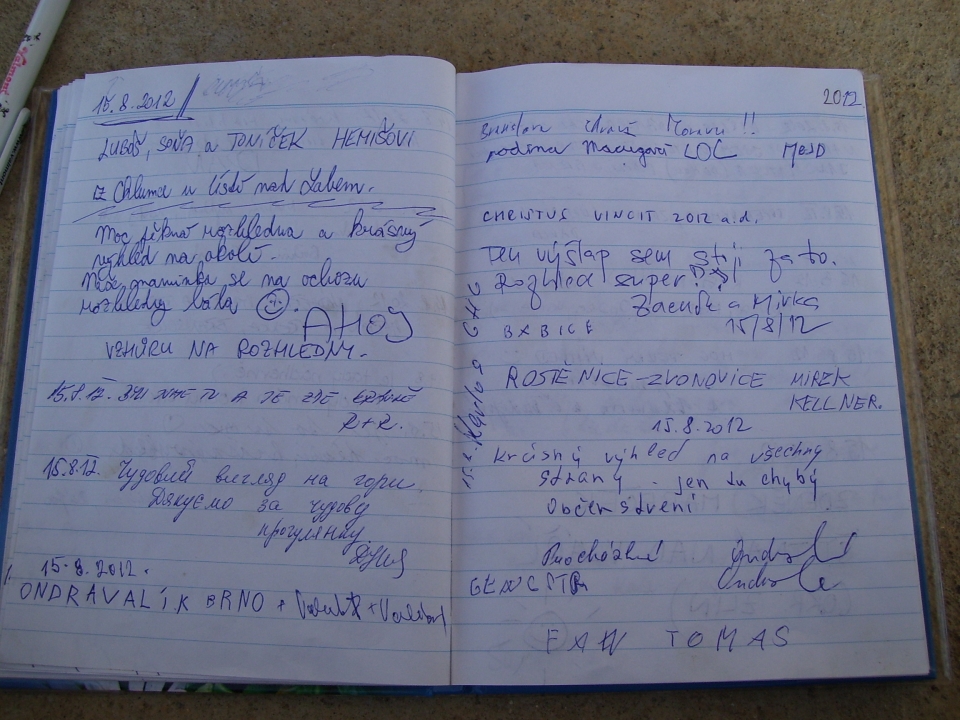 15.8.2012
LUBOŠ, SOŇA a TONÍČEK HEMIŠOVI
z Chlumce u Ústí nad Labem.
Moc pěkná rozhledna a krásný
výhled na okolí.
Naše maminka se na ochozu
rozhledny bála
AHOJ
VZHŮRU NA ROZHLEDNY.
15.8.12. BYLI JSME TU A JE ZDE KRÁSNĚ
R+R.
15.8.12. Чудовий вигляд на гори.
Дякуємо за чудову
прогулянку.
15.8.2012.
ONDRA VALÍK BRNO +
2012
zdraví Moravu !!
rodina LOC
CHRISTUS VINCIT 2012 a.d.
Ten výšlap sem stojí za to.
Rozhled super!
Zdeněk a Mirka
BABICE 15/8/12
ROSTĚNICE-ZVONOVICE MIREK
KELLNER.
15.8.2012
krásný výhled na všechny
strany - jen tu chybý
občerstvení
EXW TOMAS